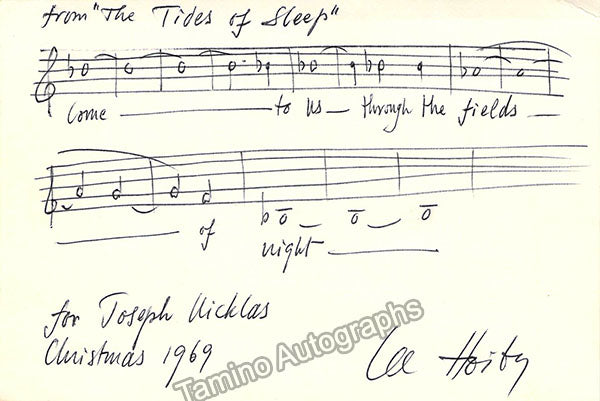 from "The Tides of Sleep"
Come to us through the fields
of night
for Joseph Nicklas
Christmas 1969
Lee Hoiby
Tamino Autographs